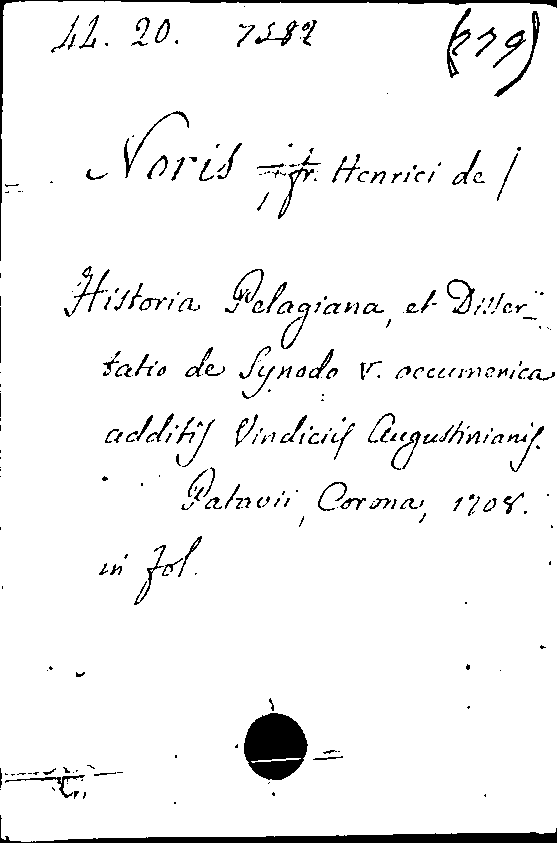 44. 20. 7582 (779)
Noris fr. Henrici de /
Historia Pelagiana, et Disser-
tatio de Synodo V. oecumenica
additis Vindiciis Augustinianis.
Patavii, Corona, 1708.
in fol.